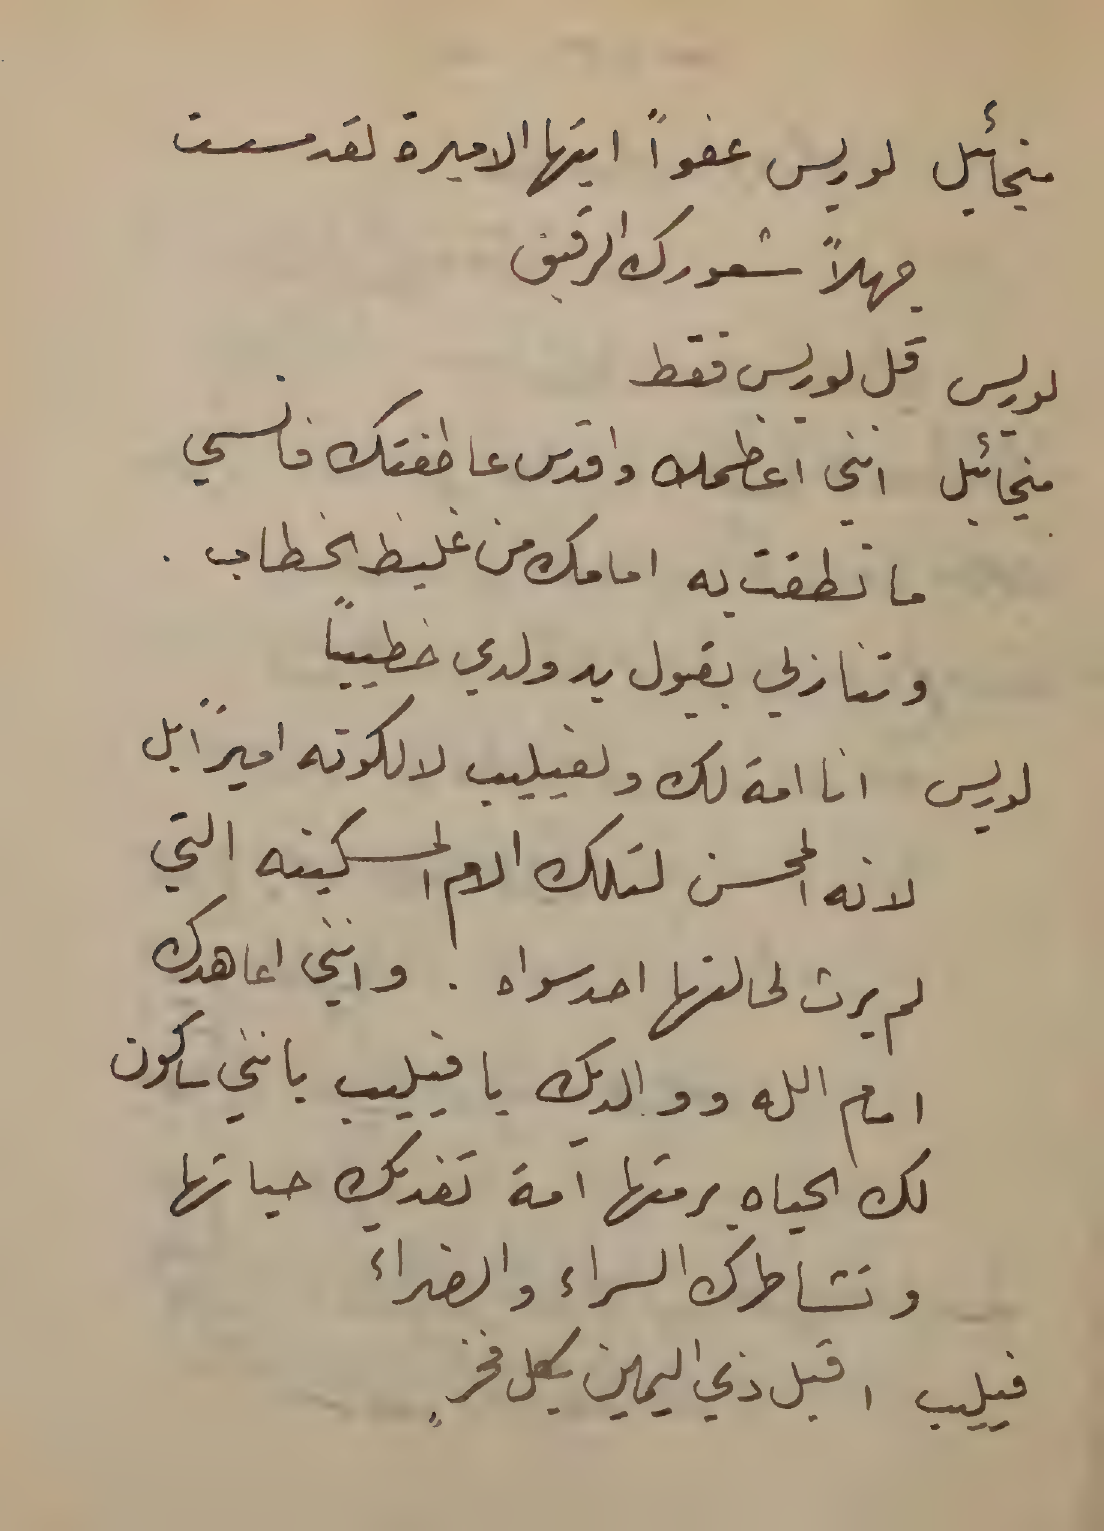 ميخائيل لوريس عفواً ايتها الاميرة لقد مسست
جهلاً شعورك الرقيق
لوريس قل لوريس فقط
ميخائيل انني اعظمك واقدس عاطفتك فانسي
ما نطقت به امامك من غليظ الخطاب .
وتنازلي بقبول يد ولدي خطيباً
لوريس انا امة لك ولفيليب لا لكونه اميراً بل
لانه المحسن لتلك الام المسكينه التي
لم يرث لحالتها احد سواه . وانني اعاهدك
امام الله ووالديك يا فيليب بانني ساكون
لك الحياه برمتها أمة تفديك حياتها
وتشاطرك السراء والضراء
فيليب اقبل ذي اليمين بكل فخرٍ